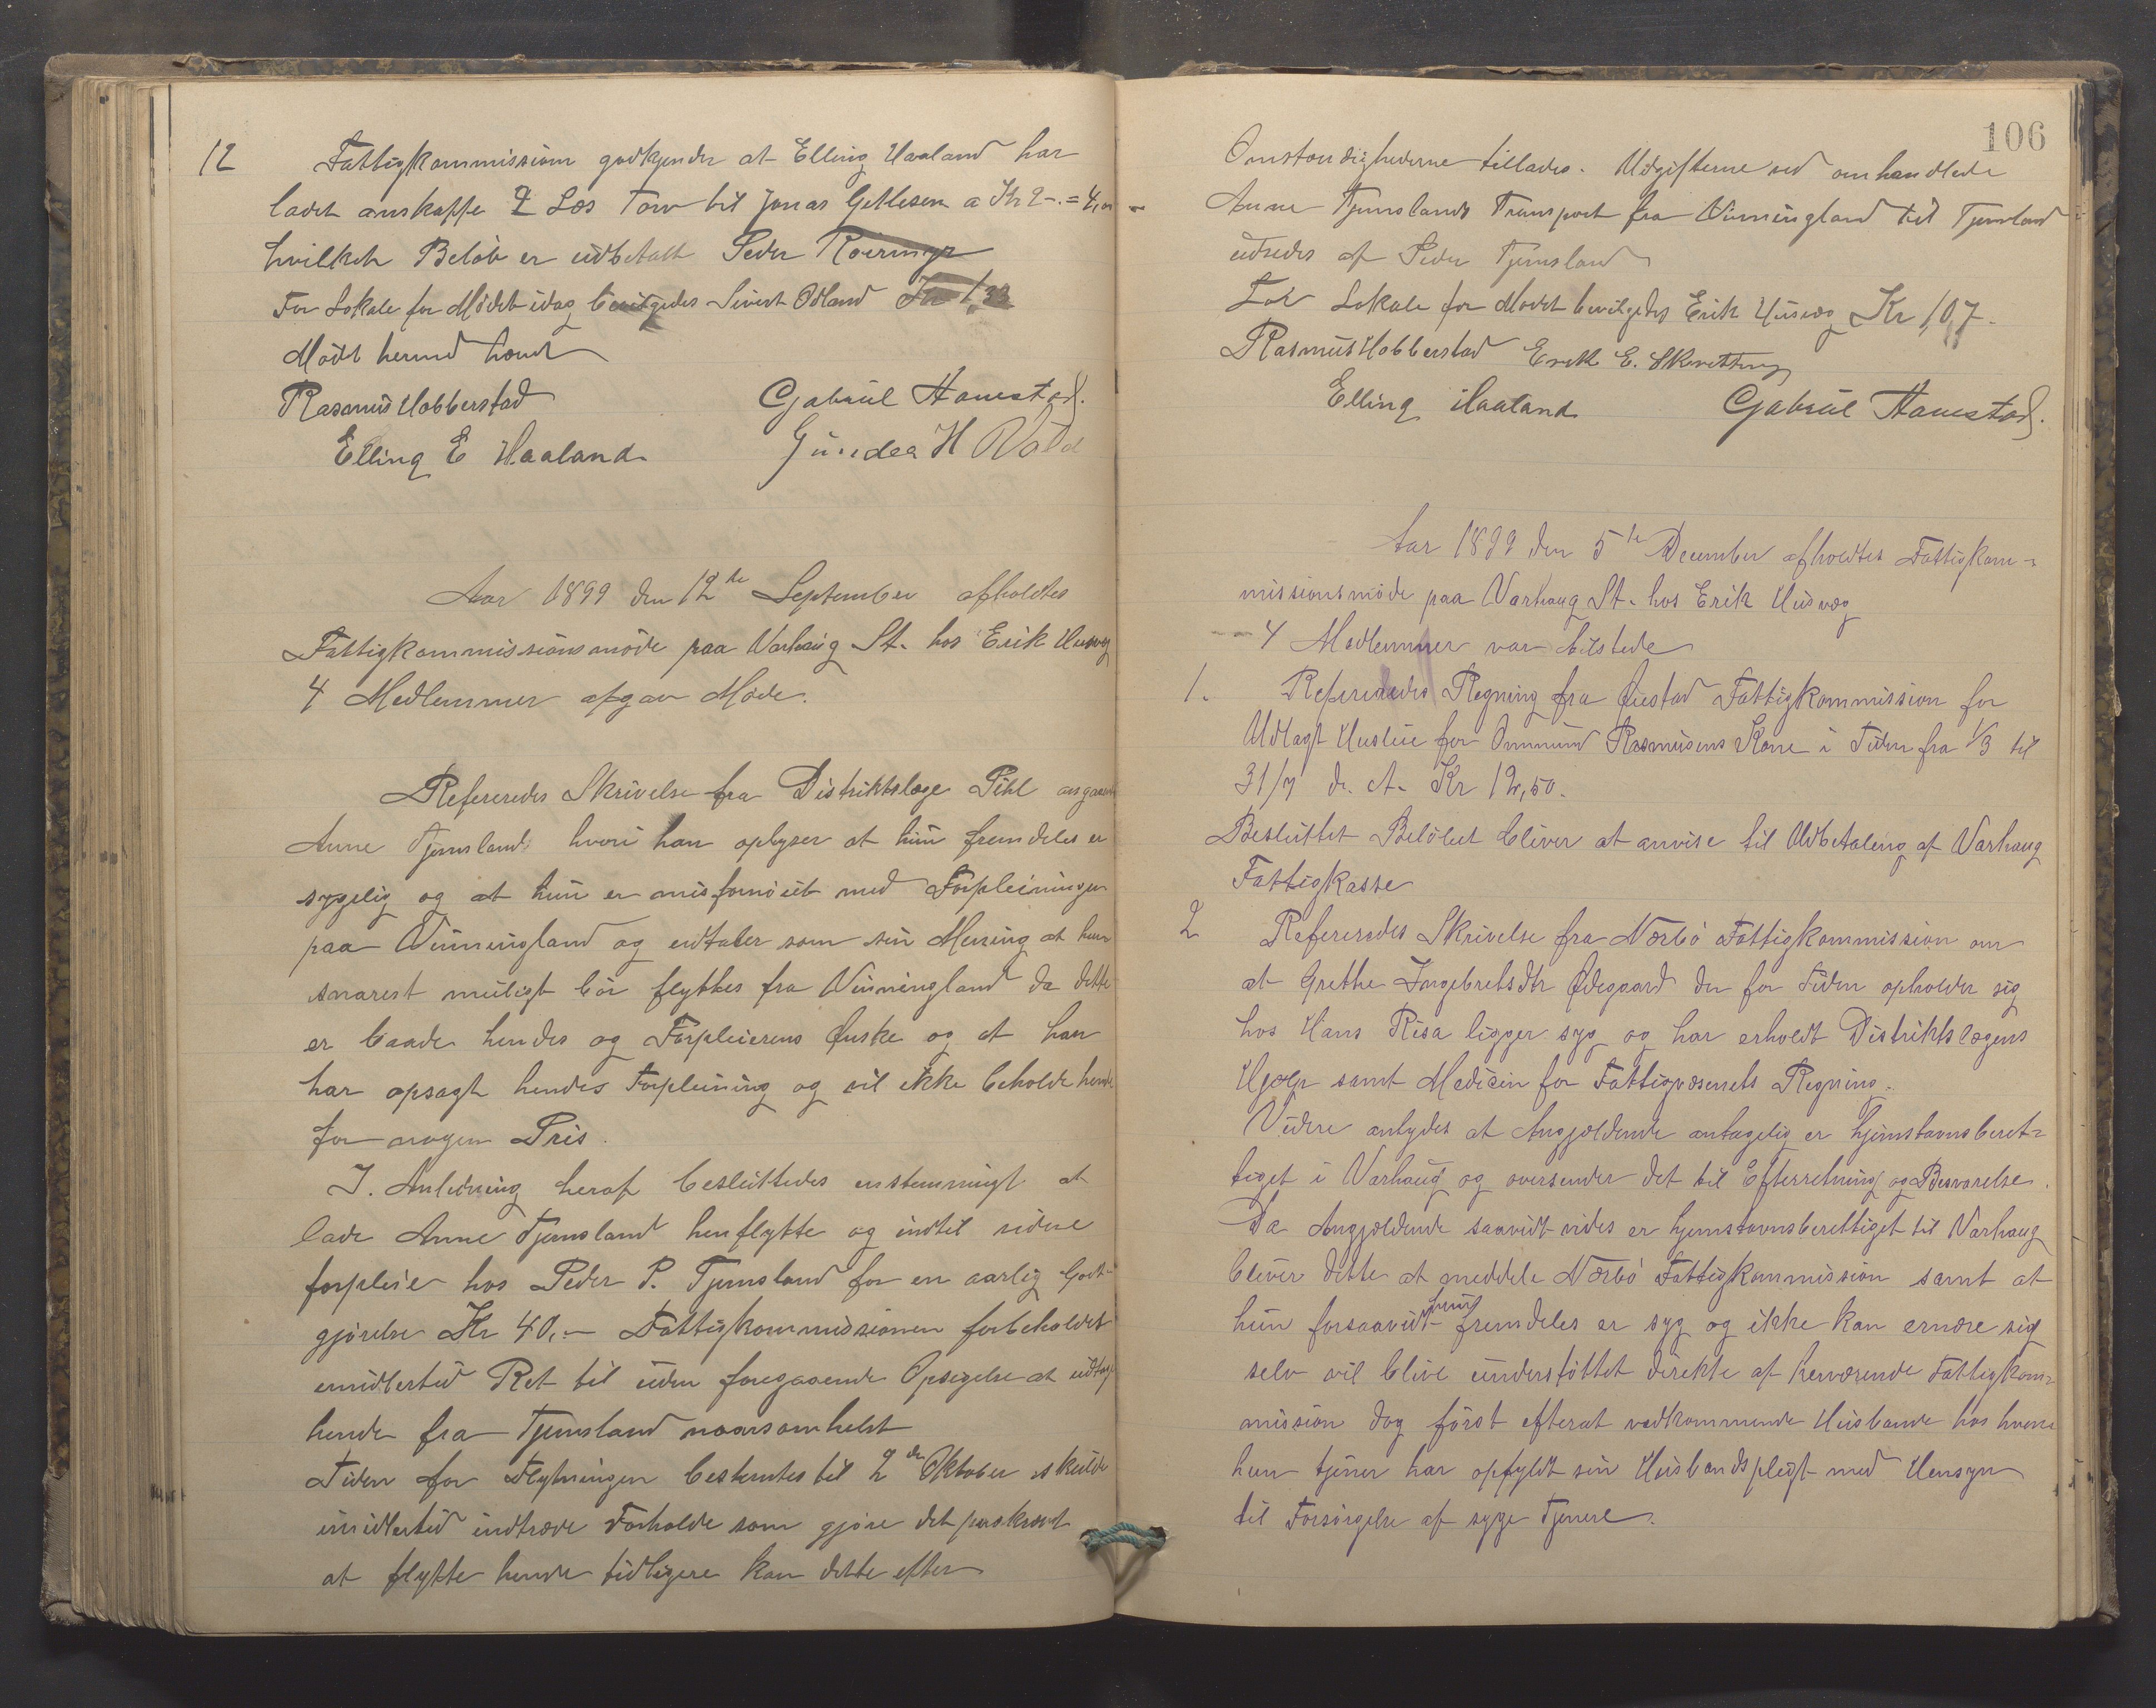 12 Fattigkommissionen godkjender at Elling Haaland har
ladet anskaffe 2 Læs Torv til Jonas Gitlesen a Kr 2-. = 4,00
hvilket Beløb er udbetalt Peder
For Lokale for Mødet idag bevilgedes Sivert Odland Kr 1,33
Mødet hermed hævet
Rasmus Hobberstad Gabriel Hanestad.
Elling E Haaland H
Aar 1899 den 12te September afholdtes
Fattigkommissionsmøde paa Varhaug St. hos Erik Husvæg
4 Medlemmer afgav Møde.
Refereredes Skrivelse fra Distriktslæge Pihl angaaende
Anne Tjemsland hvori han oplyser at hun fremdeles er
sygelig og at hun er misfornøiet med Forpleiningen
paa Vinningland og udtaler som sin Mening at hun
snarest muligt bør flyttes fra Vinningland da dette
er baade hendes og Forpleierens Ønske og at han
har opsagt hendes Forpleining og vil ikke beholde hende
for nogen Pris.
I. Anledning heraf besluttedes enstemmigt at
lade Anne Tjemsland henflytte og indtil videre
forpleie hos Peder P. Tjemsland for en aarlig Godt-
gjørelse Kr 40,- Fattigkommissionen forbeholdes
emidlertid Ret til uden foregaaende Opsigelse at udtage
hende fra Tjemsland naarsomhelst
Tiden for Flytningen bestemtes til 2den Oktober skulde
imidlertid indtræde Forholde som gjøre det paakrævet
at flytte hende tidligere kan dette efter
106
Omstændighederne tillades. Udgifterne ved omhandlede
Anne Tjemslands Transport fra Vinningland til Tjemsland
udredes af Peder Tjemsland
For Lokale for Mødet bevilgedes Erik Husvæg Kr 1,07.
Rasmus Hobberstad Erik E. Skretting
Elling Haaland Gabriel Hanestad.
Aar 1899 den 5te December afholdtes Fattigkom-
missionsmøde paa Varhaug St. hos Erik Husvæg
4 Medlemmer var tilstede
1. Refereredes Regning fra Fattigkommission for
Udlagt Husleie for Ommund Rasmusens Kone i Tiden fra 1/3 til
31/7 d. A. Kr 12,50.
Besluttet Beløbet bliver at anvise til Udbetaling af Varhaug
Fattigkasse
2 Refereredes Skrivelse fra Nærbø Fattigkommission om
at Grethe Ingebretsdtr Ødegaard der for Tiden opholder sig
hos Hans Risa ligger syg og har erholdt Distriktslægens
Hjælp samt Medicin for Fattigvæsenets Regning.
Videre antydes at Angjældende antagelig er hjemstavnsberet-
tiget i Varhaug og oversender det til Efterretning og Besvarelse.
Da Angjældende saavidt vides er hjemstavnsberettiget til Varhaug
bliver dette at meddele Nærbø Fattigkommission samt at
hun forsaavidt hun fremdeles er syg og ikke kan ernære sig
selv vil blive understøttet direkte af herværende Fattigkom-
mission dog først efterat vedkommende Husbande hos hvem
hun tjener har opfyldt sin Husbondspligt med Hensyn
til Forsørgelse af syge Tjenere.